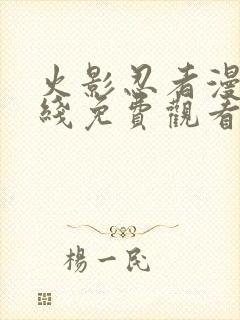 火影忍者漫
綫免費觀看
楊一民